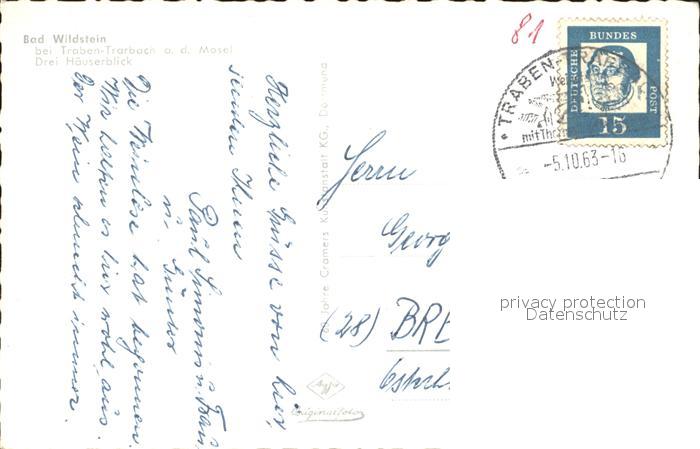 Bad Wildstein
bei Traben-Trarbach a. d. Mosel
Drei Häuserblick
81
DEUTSCHE BUNDES POST
15
TRABEN-
mit Ther
-5.10.63-16
Herzliche Grüsse von hier
senden Ihnen
Paul u. Frau
u.
Die Weinlese hat begonnen.
Wir halten es hier wohl aus.
Der Wein schmeckt immer.
Jahre Cramers Kunstanstalt KG., Dortmund
Herrn
Georg
(28) BRE
Agfa
Originalfoto
privacy protection
Datenschutz